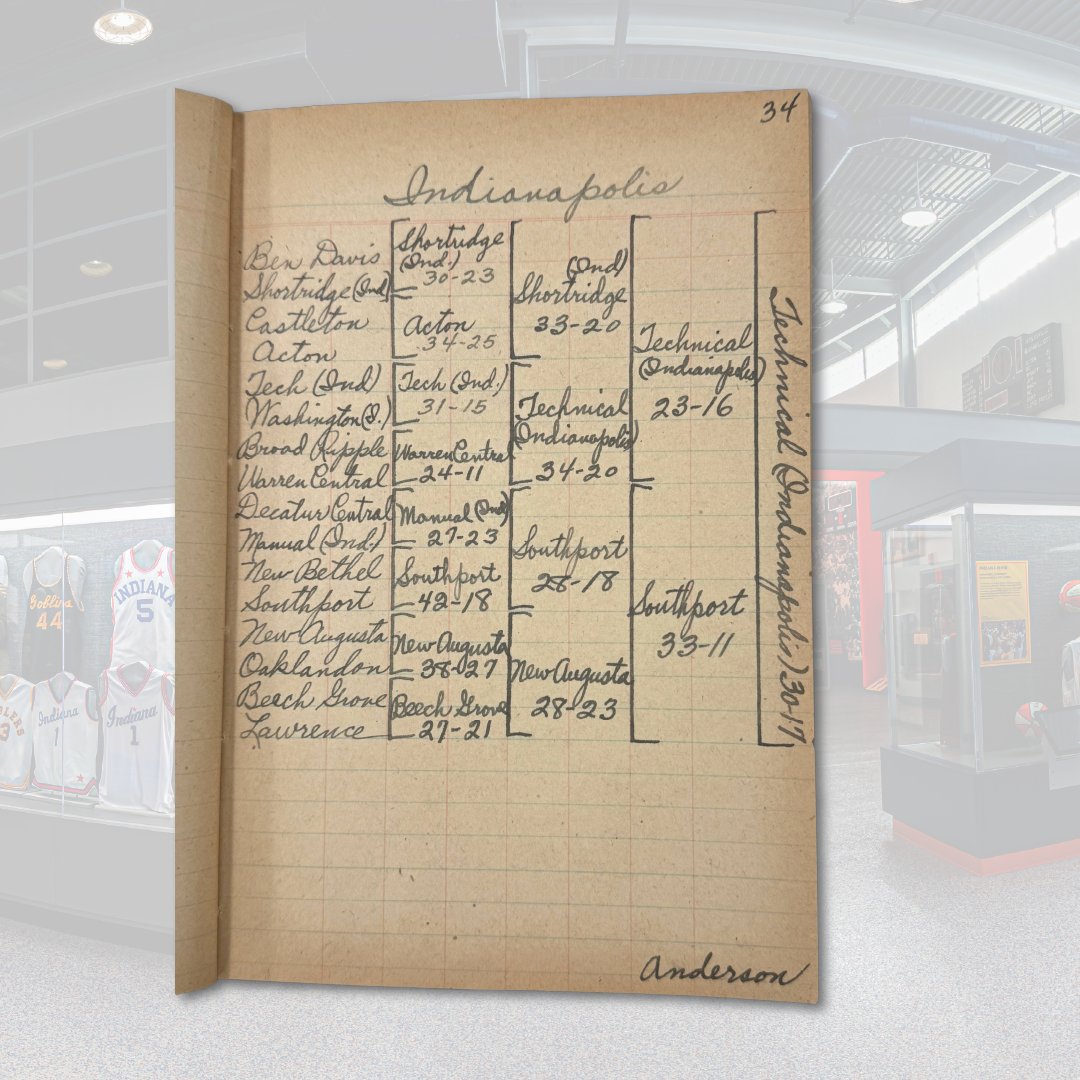 34
Indianapolis
Ben Davis
Shortridge (Ind)
Castleton
Acton
Tech (Ind)
Washington (I.)
Broad Ripple
Warren Central
Decatur Central
Manual (Ind.)
New Bethel
Southport
New Augusta
Oaklandon
Beech Grove
Lawrence
Shortridge
(Ind.)
30-23
Acton
34-25
Tech (Ind.)
31-15
Warren Central
24-11
Manual (Ind)
27-23
Southport
42-18
New Augusta
38-27
Beech Grove
27-21
(Ind)
Shortridge
33-20
Technical
(Indianapolis)
34-20
Southport
28-18
New Augusta
28-23
Technical
(Indianapolis)
23-16
Southport
33-11
Technical (Indianapolis) 30-17
Anderson
Goblins
44
INDIANA
5
3
Indiana
1
Indiana
1